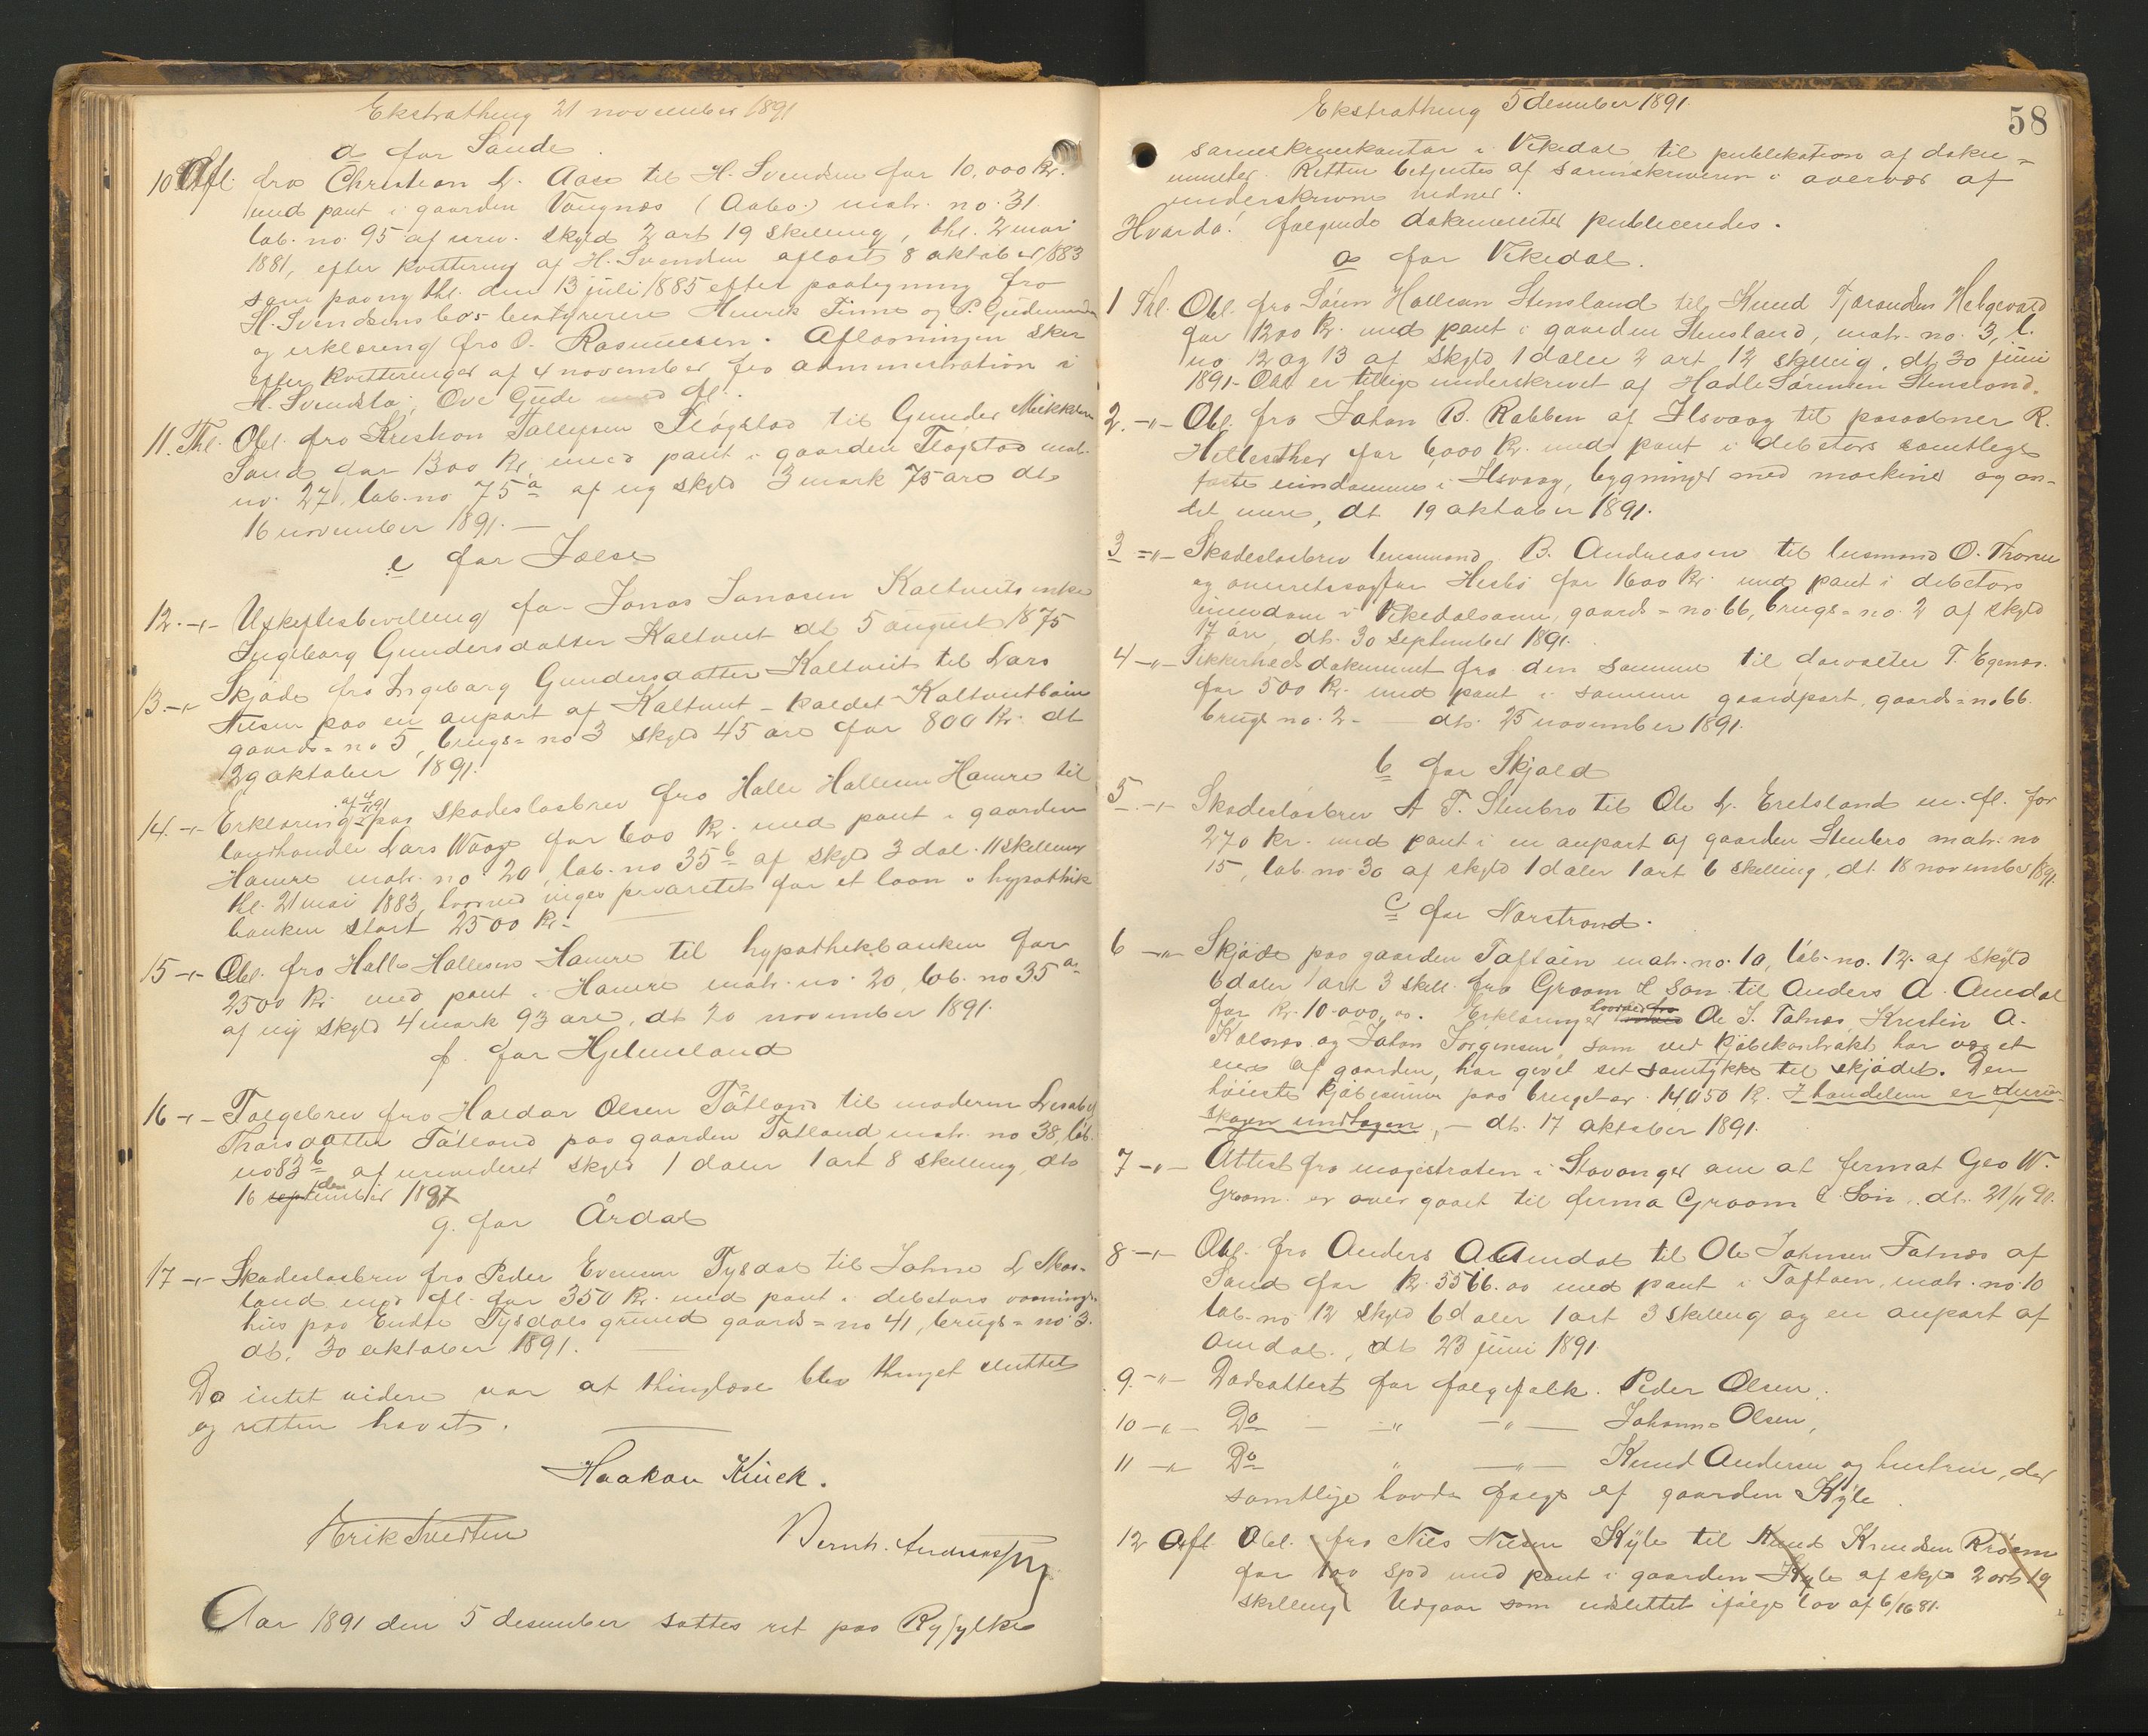 Ekstrathing 21 november 1891
d for Sande
10 Afl. fra Christian L. Aase til H. Svendsen for 10,000 kr.
med pant i gaarden Vangnæs (Aabø) matr. no. 31
løb. no. 95 af urev. skyld 2 ort 19 skilling, thl. 2 mai
1881, efter kvittering af H. Svendsen aflæst 8 oktober 1883
som paany thl. den 13 juli 1885 efter paategning fra
H. Svendsens bos bestyrere Henrik Finne og P. Gudmunds
og erklæring fra O. Rasmussen. Aflæsningen sker
efter kvitteringer af 4 november fra administration i
H. Svendsbo, Ove Gude med fl.
11. Thl. Obl. fra Kristian Tallejsen Fløgstad til Gunder Mikkelsen
Sand for 1300 kr. med pant i gaarden Fløgstad mat.
no. 27. løb. no 75 a af ny skyld 3 mark 75 øre dt.
16 november 1891. —
e for Jælse
12. -"- Uskiftesbevilling for Jonas Jonasen Kaltveits enke
Ingeborg Gundersdatter Kaltveit dt 5 august 1875
13. -"- Skjøde fra Ingeborg Gundersdatter Kaltveit til Lars
Nilsen paa en anpart af Kaltveit - kaldet Kaltveitbøin
gaards=no 5, brugs=no 3 skyld 45 øre for 800 kr. dt
29 oktober 1891.
14. -"- Erklæring af 4/11 91 paa skadesløsbrev fra Halle Hallesen Hamre til
landhandler Lars Waage for 600 kr. med pant i gaarden
Hamre matr. no 20, løb. no 35 b af skyld 3 dal. 11 skilling
thl. 21 mai 1883, hvorved viges prioritet for et laan i hypothek
banken stort 2500 kr.
15 -"- Obl. fra Halle Hallesen Hamre til hypothekbanken for
2500 kr. med pant i Hamre matr. no. 20, løb. no 35 a
af ny skyld 4 mark 93 øre, dt 20 november 1891.
f. for Hjelmeland
16 -"- Folgebrev fra Haldor Olsen Tøtland til moderen Lisabet
Thorsdatter Tøtland paa gaarden Tøtland matr. no 38, løb.
no 83 b af urevideret skyld 1 daler 1 ort 8 skilling, dt
16 september 1887
g. for Årdal
17 -"- Skadesløsbrev fra Peder Evensen Tysdal til Johne L Mos-
land med fl. for 350 kr. med pant i debitors vaanings-
hus paa Endre Tysdals grund gaards=no 41, brugs=no 3.
dt. 30 oktober 1891.
Da intet videre var at thinglæse blev thinget sluttet
og retten hævet.
Haakon Kinck.
Erik Tvedten
Bernh. Andreassen
Aar 1891 den 5 desember sattes ret paa Ryfylke
Ekstrathing 5 desember 1891.
58
sorenskriverkontor i Vikedal til publikation af doku=
menter. Retten betjentes af sorenskriveren i overvær af
underskrevne vidner.
Hvorda! følgende dokumenter publiceredes.
a for Vikedal.
1 Thl. Obl. fra Søren Hallesen Stensland til Knud Tjerandsen Helgevold
for 1200 kr. med pant i gaarden Stensland, matr. no. 3, l.
no 12 og 13 af skyld 1 daler 2 ort 12 skilling, dt. 30 juni
1891- Obl. er tillige underskrevet af Hadle Sørensen Stensland.
2. -"- Obl. fra Johan B. Rabben af Ilsvaag til poståbner R.
Hettesther for 6,000 kr. med pant i debitors samtlige
faste eiendomme i Ilsvaag, bygninger med maskiner og an-
det mere, dt. 19 oktober 1891.
3 -"- Skadesløsbrev lensmand B. Andreasen til lensmand O. Thorsen
og overretssagfør Hesbø for 1600 kr. med pant i debitors
eiendom i Vikedalsøen, gaards=no 66, brugs=no. 2 af skyld
17 øre, dt. 30 september 1891.
4 -"- Sikkerhedsdokument fra den samme til forvalter T. Egenæs
for 500 kr. med pant i samme gaardpart, gaards=no 66.
brugs no. 2- — dt. 25 november 1891.
b for Skjold
5 -"- Skadesløsbrev A T. Stenbro til Ole L. Eretsland m. fl. for
270 kr. med pant i en anpart af gaarden Stenbro matr. no
15, løb. no 30 af skyld 1 daler 1 ort 6 skilling, dt. 18 november 1891.
c for Nærstrand.
6 -"- Skjøde paa gaarden Toftøen matr. no. 10, løb. no. 12. af skyld
6 daler 1 ort 3 skill. fra Groom & søn til Anders A. Amdal
for kr. 10.000,00. Erklæringer hvorved fra Ole J. Fatnæs, Kristin A.
Kalsnæs og Johan Jørgensen, som ved kjøbekontrakt har været
eiere af gaarden, har givet sit samtykke til skjødet. Den
høieste kjøbesum paa bruget er 14,050 kr. I handelen er furu-
skogen undtagen, — dt. 17 oktober 1891.
7 -"- Attest fra magistraten i Stavanger om at firmat Geo W.
Groom er over gaaet til firma Groom & Søn. dt. 21/11 91.
8 -"- Obl. fra Anders A Amdal til Ole Johnsen Fatnæs af
Sand for kr. 5566.00 med pant i Toftøen, matr. no. 10
løb. no 12 skyld 6 daler 1 ort 3 skilling og en anpart af
Amdal., dt 23 juni 1891.
9. -"- Dødsattest for folgefolk. Peder Olsen.
10 -"- Do — -"- -"- — Johanne Olsen,
11 -"- Do " -"- — Knud Andersen og hustru, der
samtlige havde folge af gaarden Kyle.
12 Afl. Obl. fra Nils Nilsen Kyle til Knud Knudsen Røsem
for 100 spd med pant i gaarden Kyle af skyld 2 ort 19
skilling Udgaar som udslettet ifølge lov af 6/16 81.